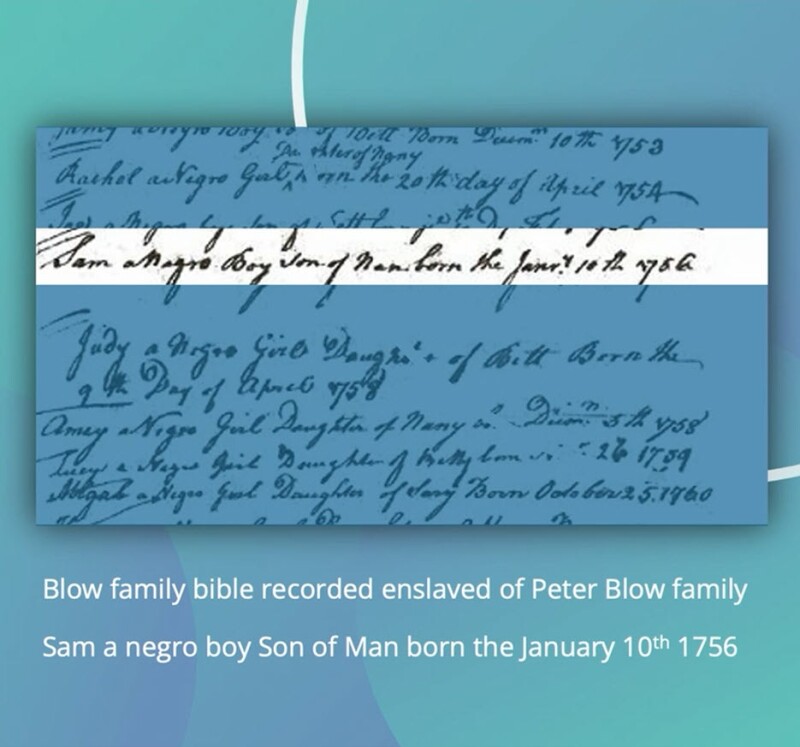 a Negro Boy of Bett Born Decem 10th 1753
Daughter of Nany
Rachel a Negro Girl, born the 20th day of April 1754
a Negro
Sam a Negro Boy Son of Nan born the Janry 10th 1756
Judy a Negro Girl Daughtr of Bett Born the
9th Day of April 1758
Amey a Negro Girl Daughter of Nany Decem 5th 1758
Lucy a Negro Girl Daughter of born 26 1759
Abigal a Negro Girl Daughter of Born October 25. 1760
Blow family bible recorded enslaved of Peter Blow family
Sam a negro boy Son of Man born the January 10th 1756